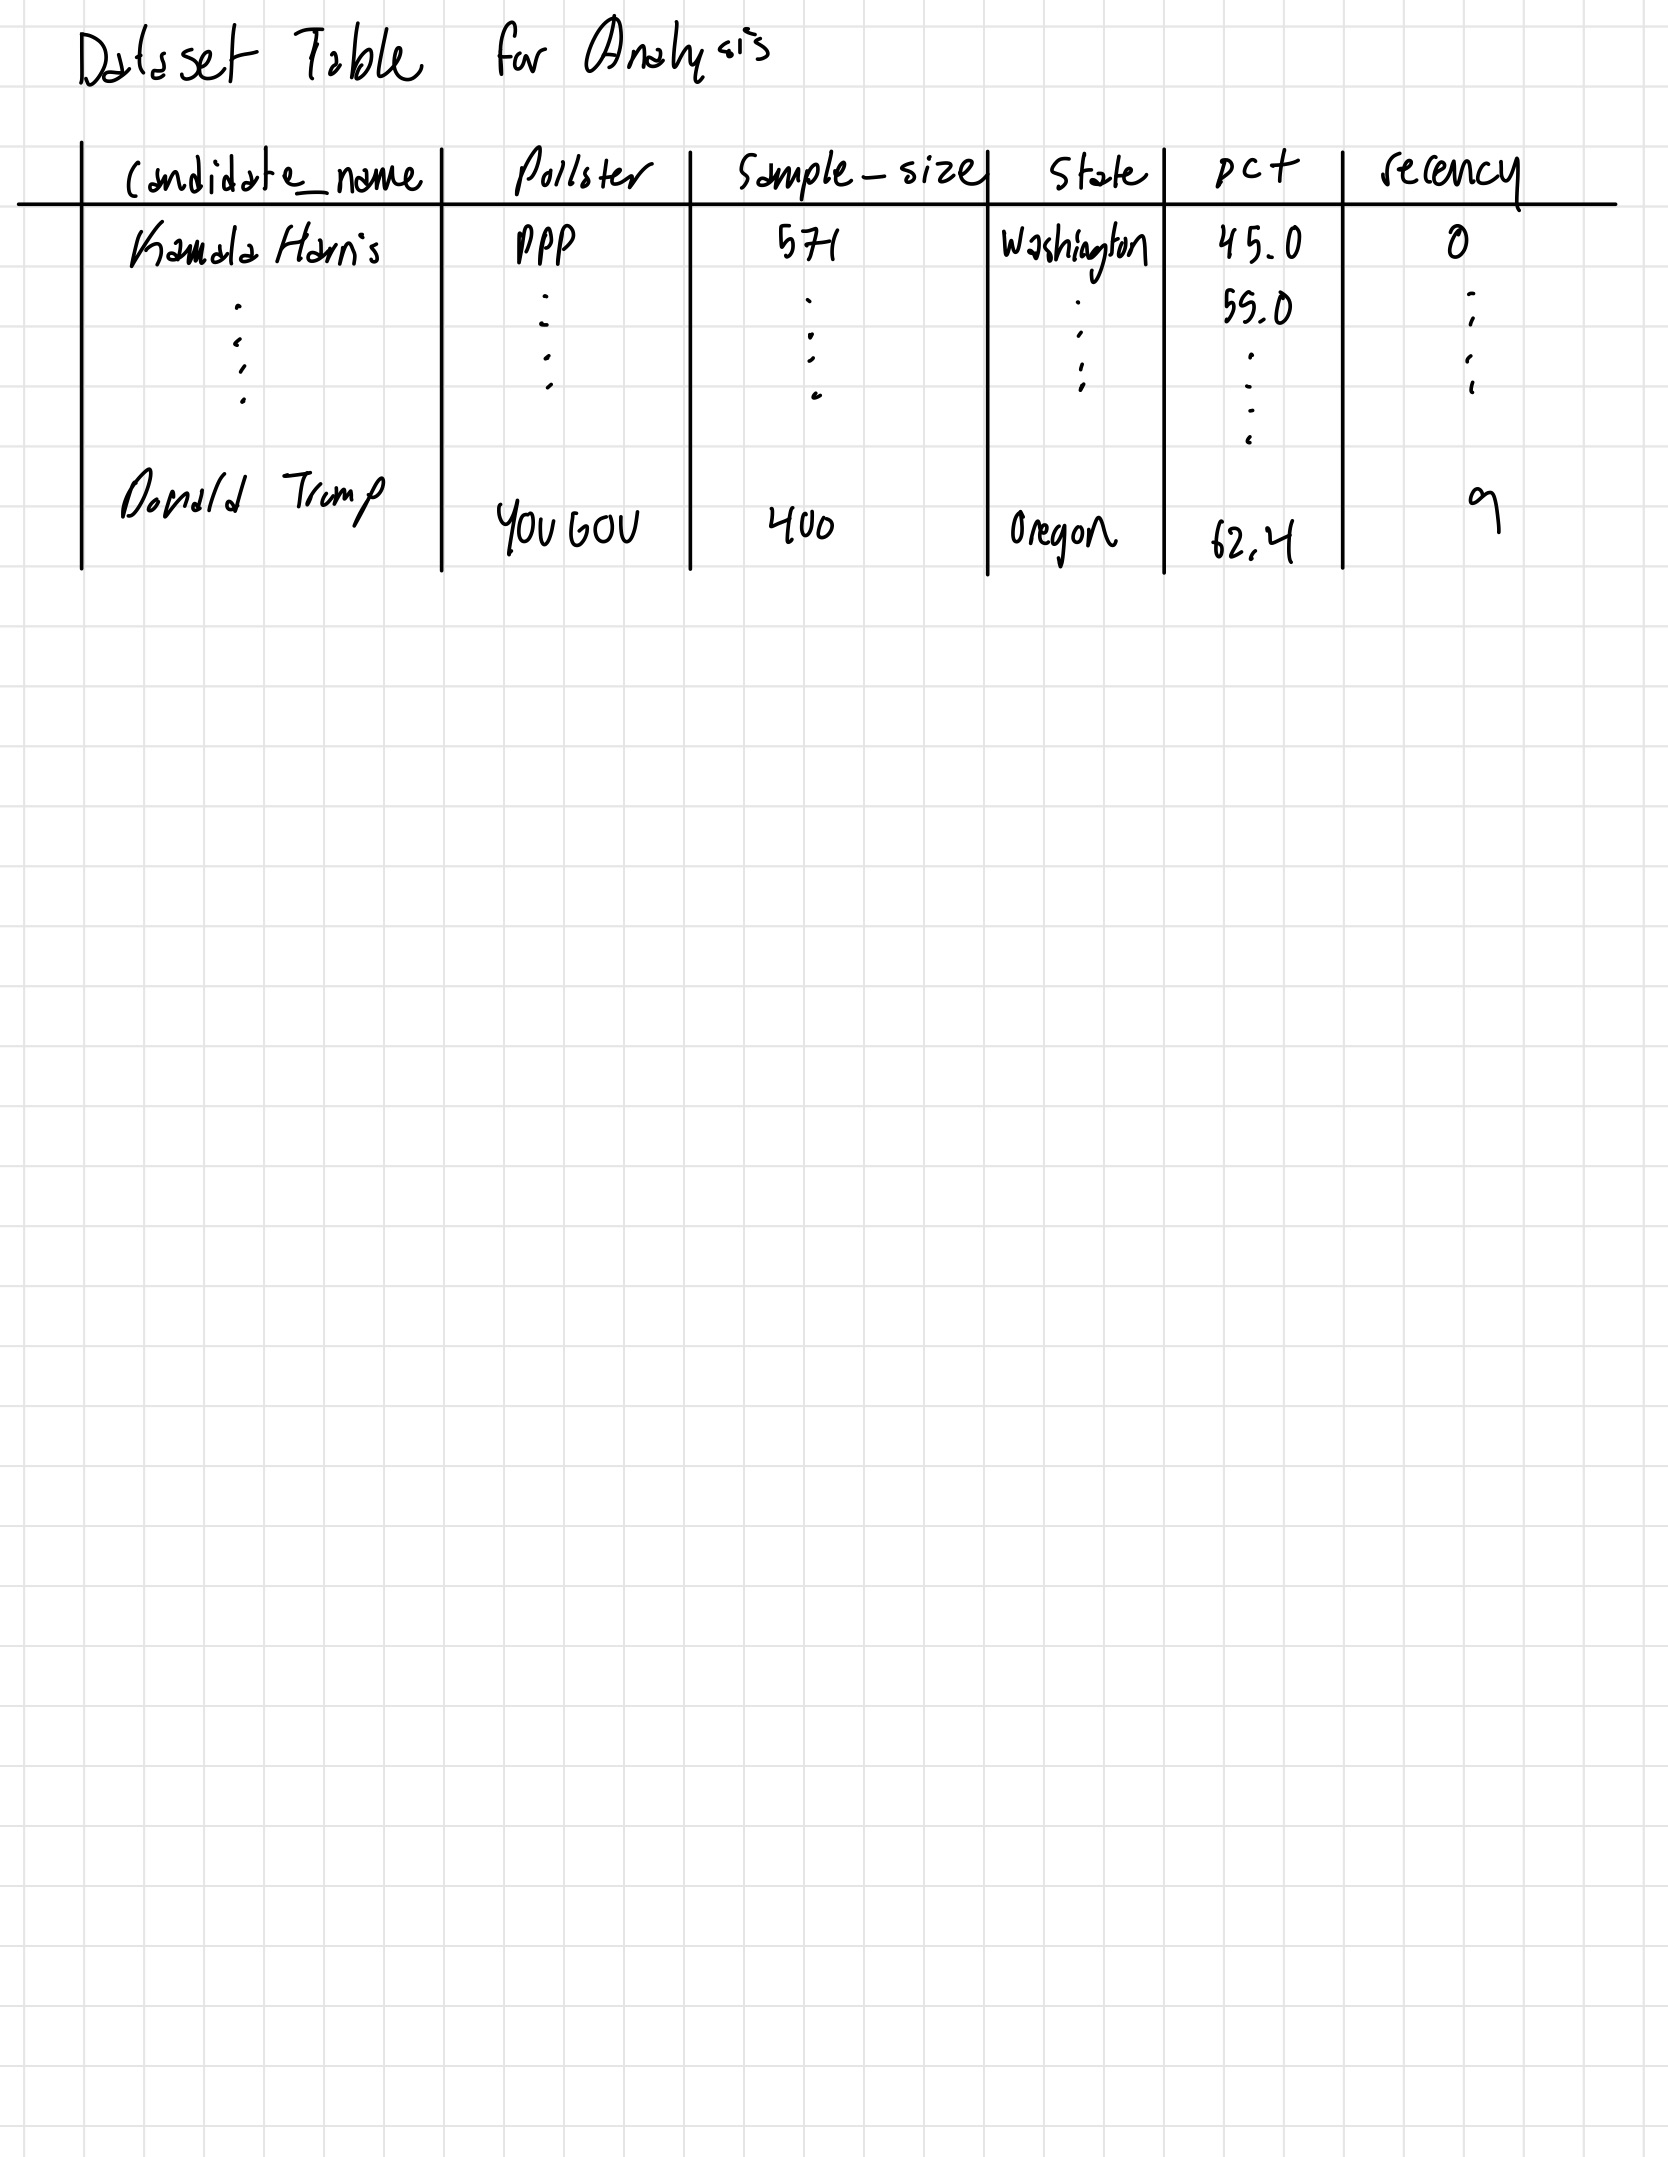 Dataset Table for Analysis
Candidate_name Pollster Sample_size State pct recency
Kamala Harris PPP 571 Washington 45.0 0
55.0
Donald Trump YOUGOV 400 Oregon 62.4 9